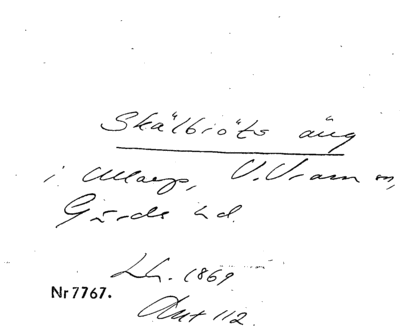 Skälbröts äng
i Allarp, V. Vram sn,
Gärds hd.
Lh. 1869
Nr 7767.
Akt 112